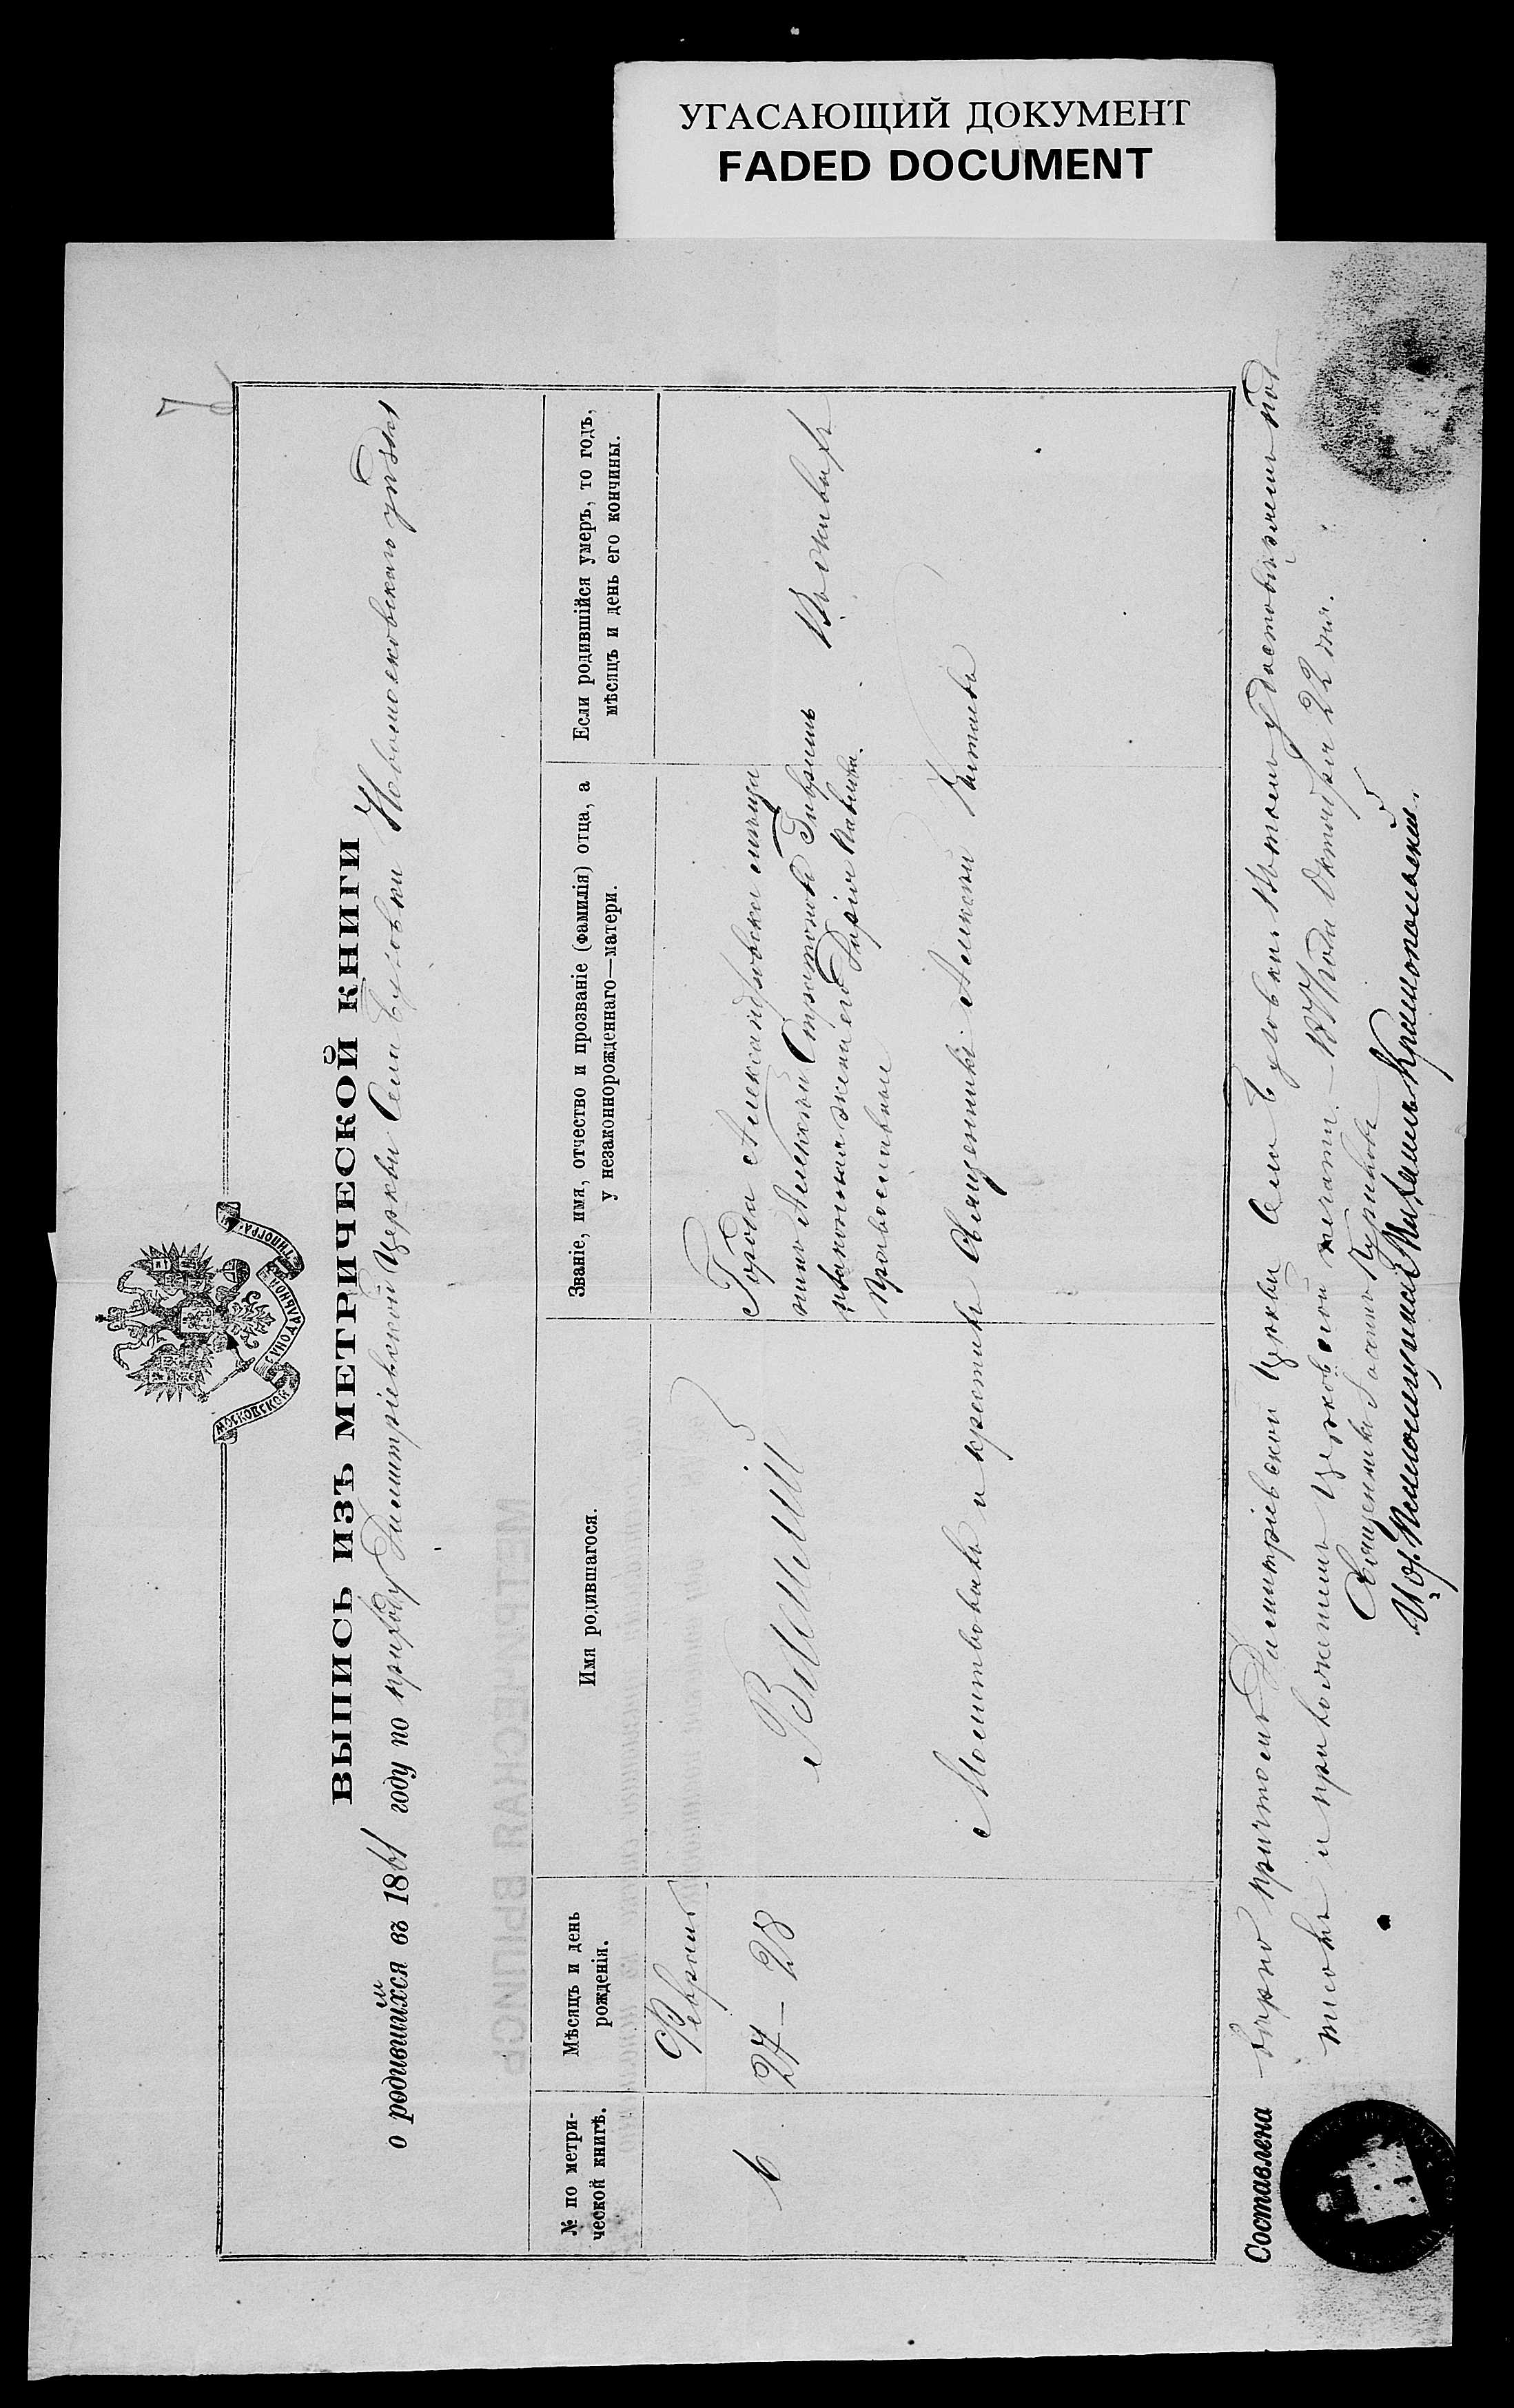 УГАСАЮЩИЙ ДОКУМЕНТ
FADED DOCUMENT
МОСКОВСКОЙ СУНОДАЛЬНОЙ ТИПОГРА.
ВЫПИСЬ ИЗЪ МЕТРИЧЕСКОЙ КНИГИ
о родившихся въ 1861 году по приходу Димитріевской Церкви Села Новомосковскаго уѣзда
№ по метри-
ческой книгѣ.
Мѣсяцъ и день
рожденія.
Имя родившагося.
Званіе, имя, отчество и прозваніе (фамилія) отца, а
у незаконнорожденнаго—матери.
Если родившійся умеръ, то годъ,
мѣсяцъ и день его кончины.
Февраль
6
27 — 28
Василій
Города Александровска мѣща
нинъ Алексѣй и
законная жена его Дарія
Православные
Молитвовалъ и крестилъ Священникъ Алексѣй
Составлена вѣрно причтомъ Димитріевской Церкви Села въ томъ удостовѣряемъ под
писомъ и приложеніемъ Церковной печати. года Октября 22 дня.
Священникъ
И. д. Псаломщика Михаилъ